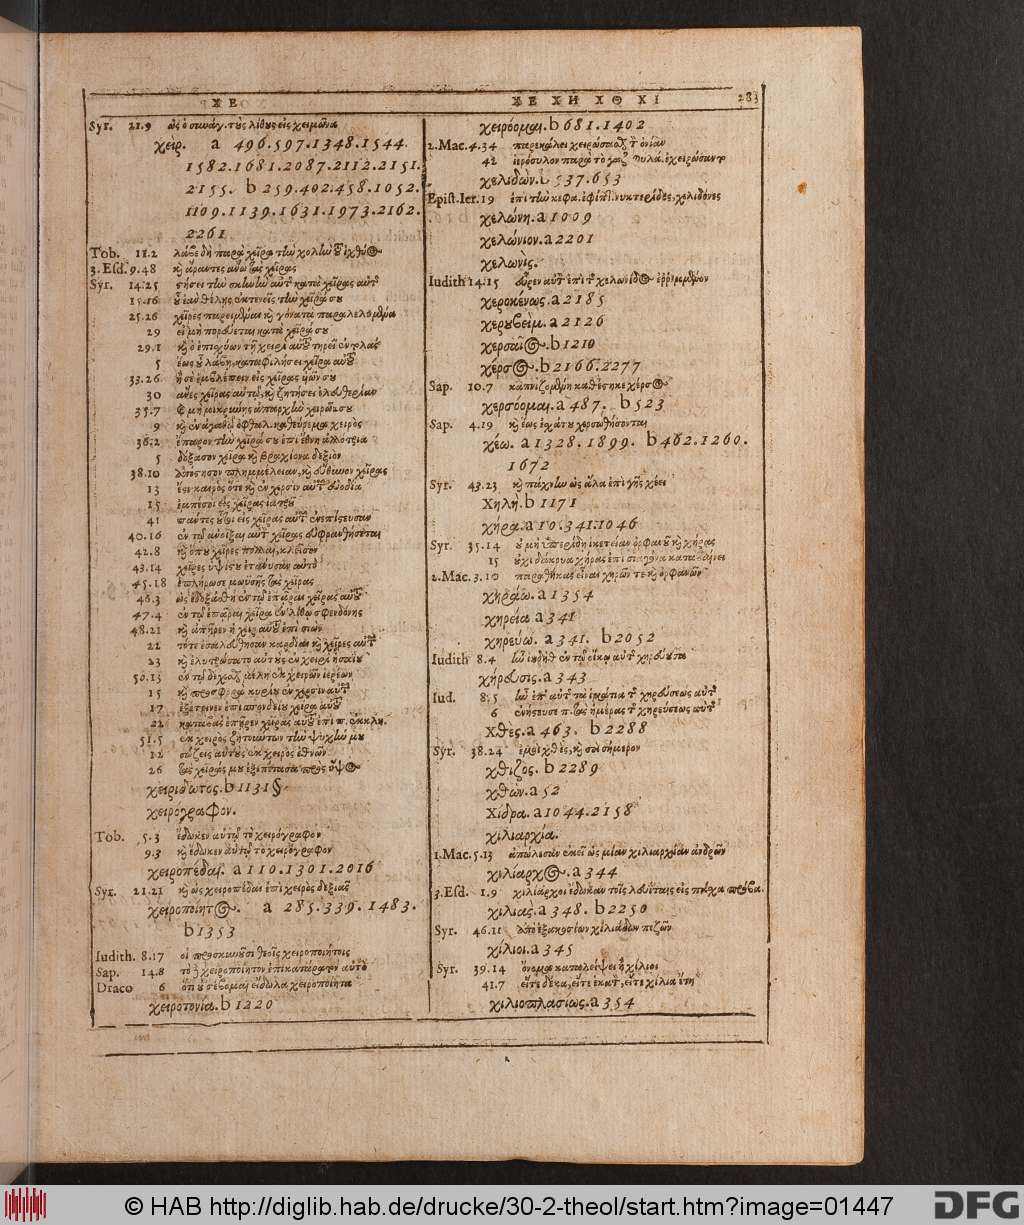 ΧΕ
ΧΕ ΧΗ ΧΘ ΧΙ 283
Syr. 21.9 ὡς ὁ συνάγ. τοὺς λίθους εἰς χειμῶνα
χείρ. a 496.597.1348.1544.
1582.1681.2087.2112.2151.
2155. b 259.402.458.1052.
1109.1139.1631.1973.2162.
2261
Tob. 11.2 λάβε δὴ παρὰ χεῖρα τὴν χολὴν τοῦ ἰχθύος
3. Esd. 9.48 καὶ ἄραντες ἄνω τὰς χεῖρας
Syr. 14.25 στήσει τὴν σκηνὴν αὐτοῦ κατὰ χεῖρας αὐτοῦ
15.16 οὗ ἐὰν θέλῃς ἐκτενεῖς τὴν χεῖρά σου
25.26 χεῖρες παρειμέναι καὶ γόνατα παραλελυμένα
29 εἰ μὴ πορεύεται κατὰ χεῖρά σου
29.1 καὶ ὁ ἐπισχύων τῇ χειρὶ αὐτοῦ τηρεῖ ἐντολάς
5 ἕως οὗ λάβῃ, καταφιλήσει χεῖρα αὐτοῦ
33.26
30 ἄνες χεῖρας αὐτῷ, καὶ ζητήσει ἐλευθερίαν
35.7 καὶ μὴ μικρύνῃς ἀπαρχὴν χειρῶν σου
9 καὶ ἐν ἀγαθῷ ὀφθαλ. καθεύρεμα χειρὸς
36.2 ἔπαρον τὴν χεῖρά σου ἐπὶ ἔθνη ἀλλότρια
5 δόξασον χεῖρα καὶ βραχίονα δεξιὸν
38.10 ἀπόστησον πλημμέλειαν, καὶ εὔθυνον χεῖρας
13 ἔστι καιρὸς ὅτε καὶ ἐν χερσὶν αὐτῶν εὐοδία
15 ἐμπέσοι εἰς χεῖρας ἰατροῦ
41 πάντες οὗτοι εἰς χεῖρας αὐτῶν ἐνεπίστευσαν
40.16 ἐν τῷ ἀνοῖξαι αὐτὸν χεῖρας εὐφρανθήσεται
42.8 καὶ ὅπου χεῖρες πολλαὶ, κλεῖσον
43.14 χεῖρες ὑψίστου ἐτάνυσαν αὐτὸ
45.18 ἐπλήρωσε μωϋσῆς τὰς χεῖρας
46.3 ὡς ἐδοξάσθη ἐν τῷ ἐπᾶραι χεῖρας αὐτοῦ
47.4 ἐν τῷ ἐπᾶραι χεῖρα ἐν λίθῳ σφενδόνης
48.21
22 τότε ἐσαλεύθησαν καρδίαι καὶ χεῖρες αὐτῶν
23 καὶ ἐλυτρώσατο αὐτοὺς ἐν χειρὶ ἡσαΐου
50.13 ἐν τῷ δέχεσθαι μέλη ἐκ χειρῶν ἱερέων
15 καὶ προσφορὰ κυρίου ἐν χερσὶν αὐτῶν
17 ἐξέτεινεν ἐπὶ σπονδείου χεῖρα αὐτοῦ
22 καταβὰς ἐπῆρεν χεῖρας αὐτοῦ ἐπὶ π. ἐκκλη.
51.5 ἐκ χειρὸς ζητούντων τὴν ψυχήν μου
12 σώζεις αὐτοὺς ἐκ χειρὸς ἐθνῶν
26 τὰς χεῖράς μου ἐξεπέτασα πρὸς ὕψος
χειριδωτός. b 1131 §
χειρόγραφον.
Tob. 5.3 ἔδωκεν αὐτῷ τὸ χειρόγραφον
9.3 καὶ ἔδωκεν αὐτῷ τὸ χειρόγραφον
χειροπέδαι. a 110.1301.2016
Syr. 21.21 καὶ ὡς χειροπέδαι ἐπὶ χειρὸς δεξιᾶς
χειροποίητος. a 285.339.1483.
b 1353
Iudith. 8.17 οἳ προσκυνοῦσι θεοῖς χειροποιήτοις
Sap. 14.8 τὸ δὲ χειροποίητον ἐπικατάρατον αὐτὸ
Draco 6 ὅτι οὐ σέβομαι εἴδωλα χειροποίητα
χειροτονία. b 1220
χειρόομαι. b 681.1402
2. Mac. 4.34 παρεκάλει χειρώσασθαι τὸν ὀνίαν
42 ἱερόσυλον παρὰ τὸ γαζοφυλά. ἐχειρώσαντο
χελιδών. b 537.653
Epist. Ier. 19 ἐπὶ τὴν κεφα. ἐφίπ. νυκτερίδες, χελιδόνες
χελώνη. a 1009
χελώνιον. a 2201
χελωνίς.
Iudith 14.15 εὗρεν αὐτὸν ἐπὶ τῆς χελωνίδος ἐρριμμένον
χεροκένως. a 2185
χερουβείμ. a 2126
χερσαῖος. b 1210
χέρσος. b 2166.2277
Sap. 10.7 καπνιζομένη καθέστηκε χέρσος
χερσόομαι. a 487. b 523
Sap. 4.19 καὶ ἕως ἐσχάτου χερσωθήσονται
χέω. a 1328.1899. b 462.1260.
1672
Syr. 43.23 καὶ πάχνην ὡς ἅλα ἐπὶ γῆς χέει
Χηλή. b 1171
χήρα. a 10.341.1046
Syr. 35.14 οὐ μὴ ὑπερίδῃ ἱκετείαν ὀρφανοῦ καὶ χήρας
15 οὐχὶ δάκρυα χήρας ἐπὶ σιαγόνα καταβαίνει
2. Mac. 3.10 παραθήκας εἶναι χηρῶν τε καὶ ὀρφανῶν
χηράω. a 1354
χηρεία. a 341
χηρεύω. a 341. b 2052
Iudith 8.4 ἦν ἰουδὴθ ἐν τῷ οἴκῳ αὐτῆς χηρεύουσα
χήρευσις. a 343
Iud. 8.5 ἦν ἐπ' αὐτῆς τὰ ἱμάτια τῆς χηρεύσεως αὐτῆς
6 ἐνήστευσε π. τὰς ἡμέρας τῆς χηρεύσεως αὐτῆς
Χθές. a 463. b 2288
Syr. 38.24 ἐμοὶ χθὲς, καὶ σοὶ σήμερον
χθιζός. b 2289
χθών. a 52
Χίδρα. a 1044.2158
χιλιαρχία.
1. Mac. 5.13 ἀπώλεσαν ἐκεῖ ὡς μίαν χιλιαρχίαν ἀνδρῶν
χιλίαρχος. a 344
3. Esd. 1.9 χιλίαρχοι ἔδωκαν τοῖς λευίταις εἰς πάσχα πρόβα.
χιλιάς. a 348. b 2250
Syr. 46.11 ἀπὸ ἑξακοσίων χιλιάδων πεζῶν
χίλιοι. a 345
Syr. 39.14 ὄνομα καταλείψει ἢ χίλιοι
41.7 εἴτε δέκα, εἴτε ἑκατὸν, εἴτε χίλια ἔτη
χιλιοπλασίως. a 354
© HAB http://diglib.hab.de/drucke/30-2-theol/start.htm?image=01447
DFG